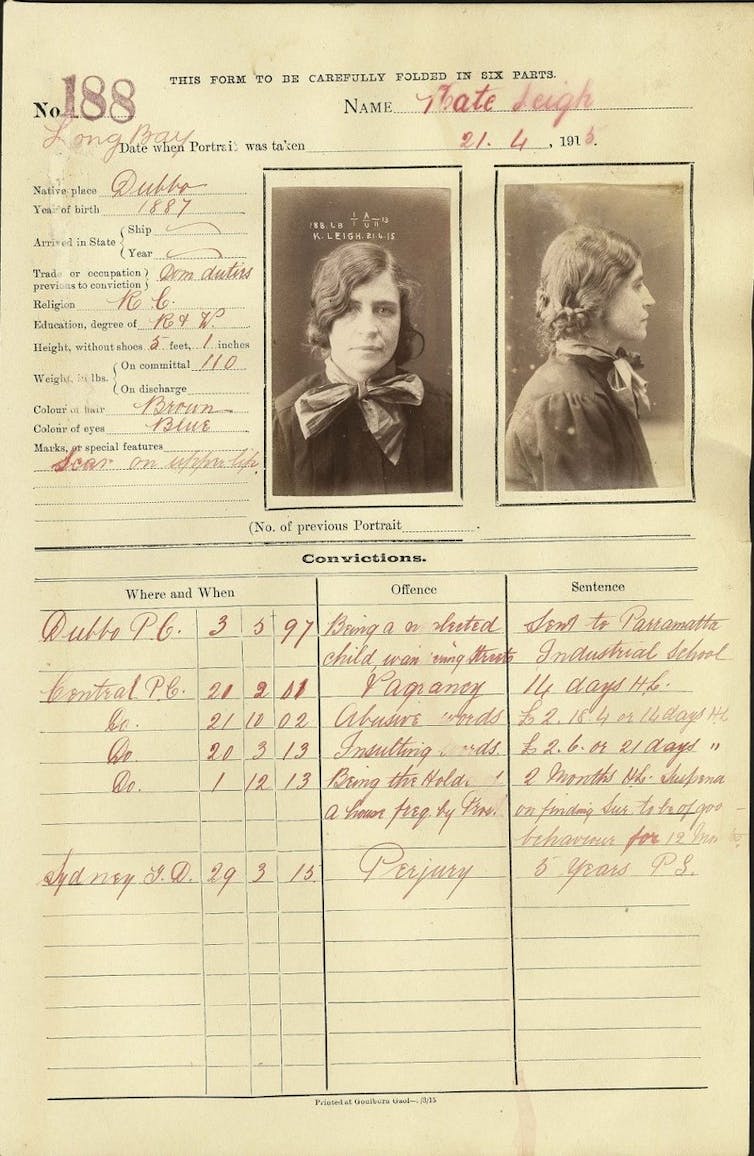 THIS FORM TO BE CAREFULLY FOLDED IN SIX PARTS.
No. 188
NAME Kate Leigh
Long Bay
Date when Portrait was taken 21. 4, 1915.
Native place Dubbo
Year of birth 1887
Arrived in State { Ship
Year
Trade or occupation previous to conviction } Dom duties
Religion R C.
Education, degree of R & W.
Height, without shoes 5 feet, 1 inches
Weight, in lbs. { On committal 110
On discharge
Colour of hair Brown
Colour of eyes Blue
Marks, or special features
Scar on upper lip
188 LB
K. LEIGH. 21.4.15
(No. of previous Portrait .
Convictions.
Where and When Offence Sentence
Dubbo P.C. 3 5 97 Being a lected Sent to Parramatta
child wan ring streets Industrial School
Central P.C. 21 2 01 Vagrancy 14 days H.L.
Do. 21 10 02 Abusive words £2.18.4 or 14 days H.L
Do 20 3 13 Insulting words. £2.6. or 21 days "
Do. 1 12 13 Being the Hold 2 Months H.L. Suspend
a house freq. by Pros. on finding Sur. to be of goo
behaviour for 12 Mn
Sydney Q.D. 29 3 15 Perjury 5 Years P.S.
Printed at Goulburn Gaol—/3/15